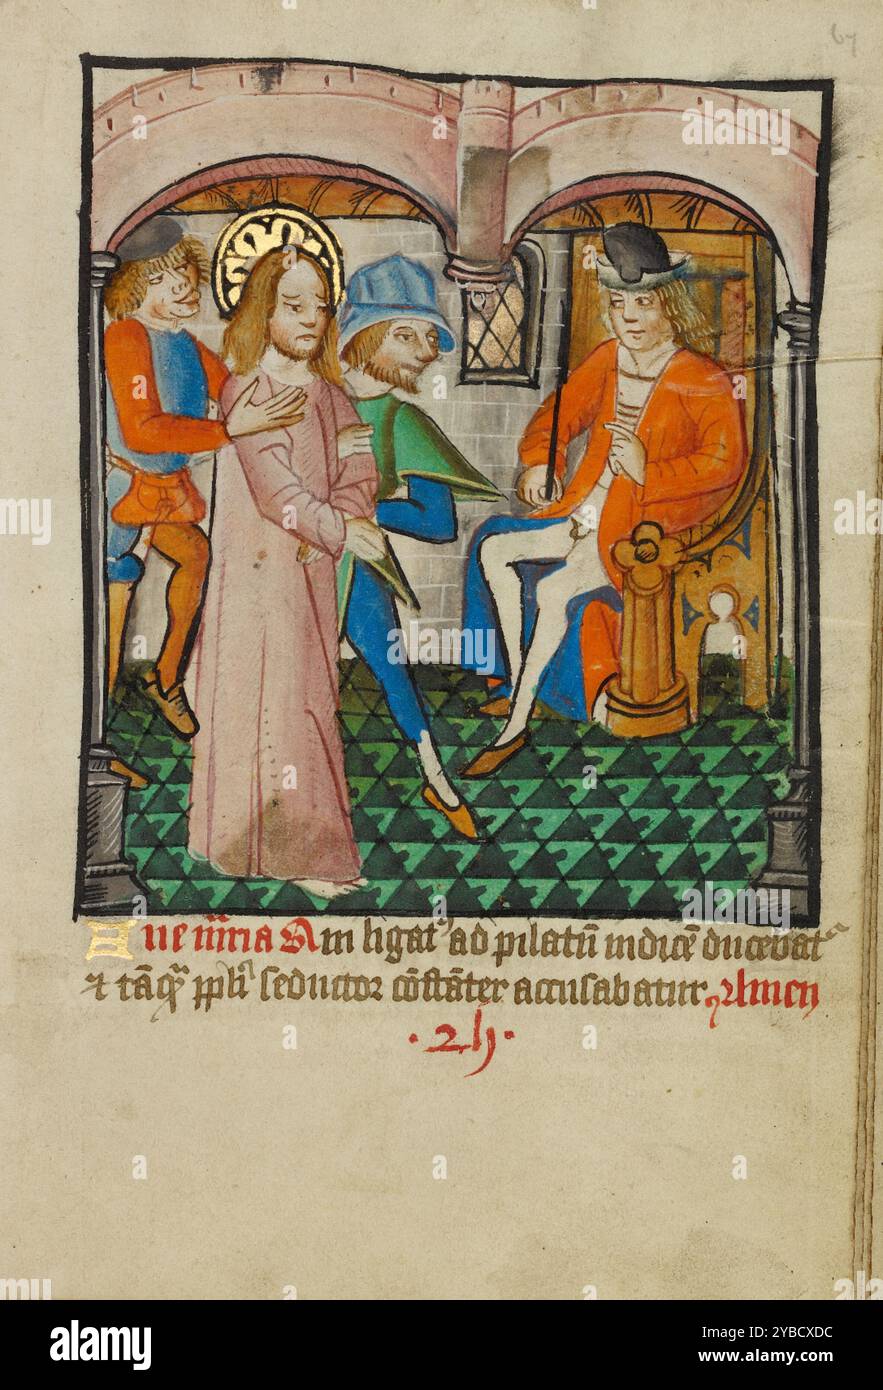 67
Aue m̄ria Qm ligat᷒ ad pilatū iudicē ducebat᷒
⁊ tāq̄ʒ ppl̓i seductor cōstāter accusabatur. Amen
.24.
alamy
Image ID: 2YBCXDC
www.alamy.com